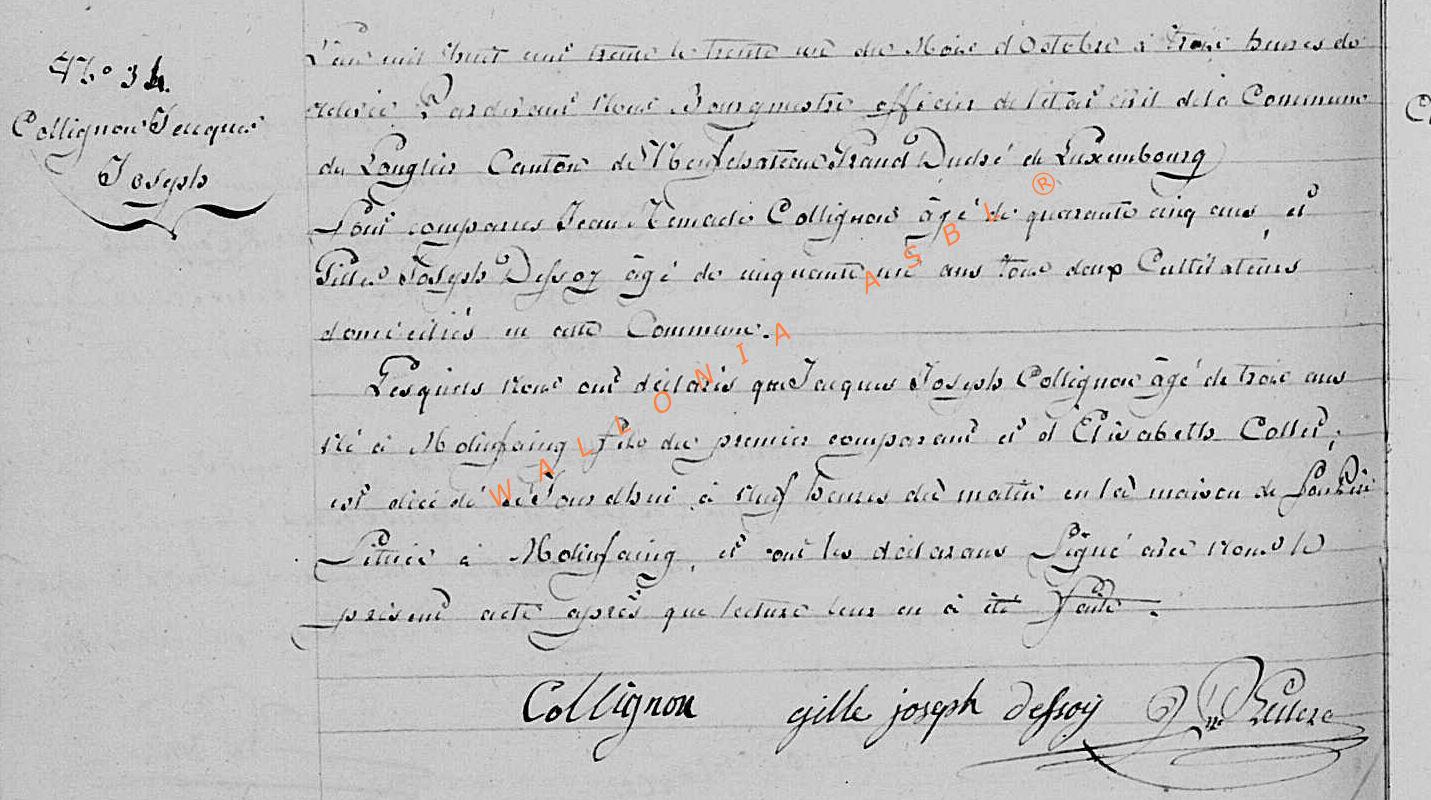 N° 34.
Collignon Jacques
Joseph
L'an mil huit cent trente le trente un du Mois d'Octobre à trois heures de
relevée Pardevant Nous Bourgmestre officier de l'état civil de la Commune
de Longlier Canton de Neufchateau Grand Duché de Luxembourg
Sont comparus Jean Remacle Collignon âgé de quarante cinq ans et
Gilles Joseph Dessoy âgé de cinquante un ans tous deux Cultivateurs
domiciliés en cette Commune.
Lesquels nous ont déclarés que Jacques Joseph Collignon âgé de trois ans
Né à Molinfaing fils du premier comparant et d'Elisabeth Collet,
est décédé ce Jourdhui à neuf heures du matin en la maison de
Située à Molinfaing, et ont les déclarans Signé avec nous le
présent acte après que lecture leur en à été faite.
Collignon gille joseph dessoy
WALLONIA ASBL ®